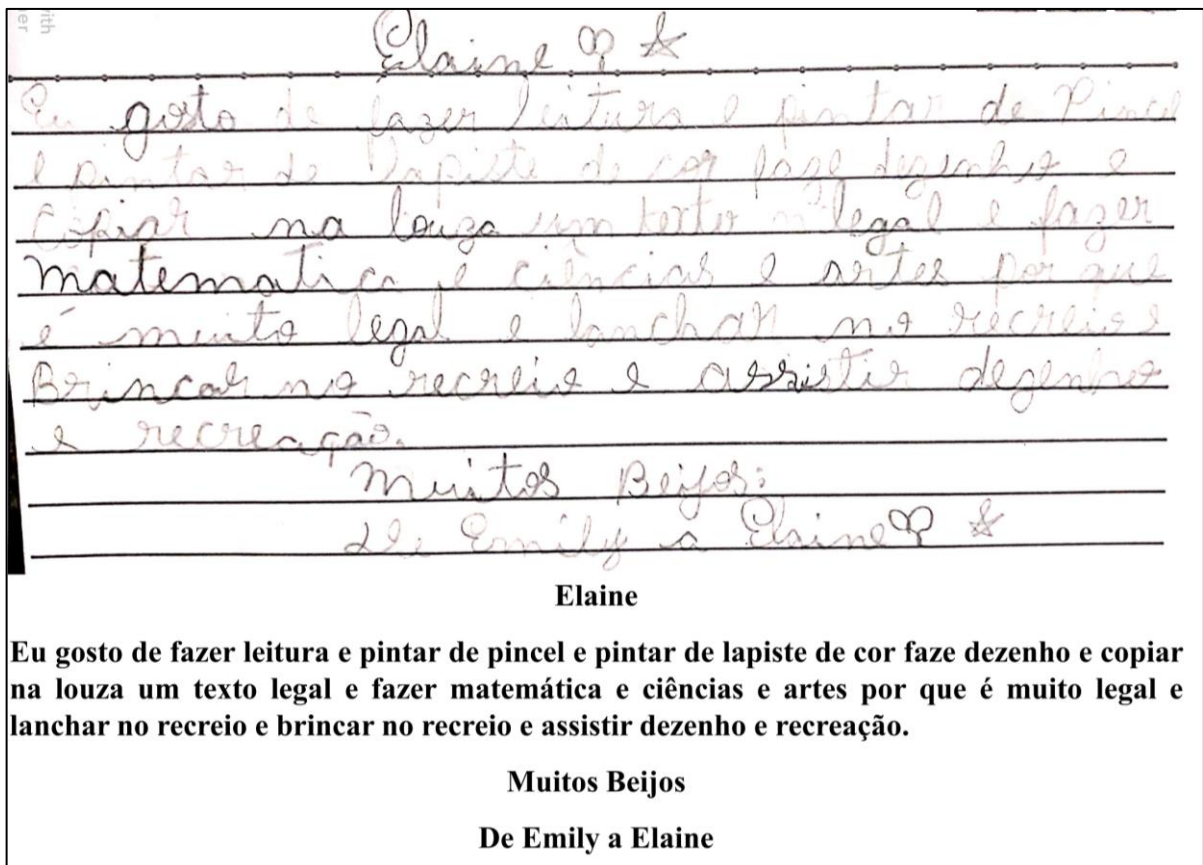 Elaine
Eu gosto de fazer leitura e pintar de Pincel
e pintar de Lapiste de cor faze dezenho e
Copiar na louza um texto legal e fazer
matematica e ciências e artes por que
é muito legal e lanchar no recreio e
Brincar no recreio e assistir dezenho
e recreação.
Muitos Beijos:
De Emily a Elaine
Elaine
Eu gosto de fazer leitura e pintar de pincel e pintar de lapiste de cor faze dezenho e copiar
na louza um texto legal e fazer matemática e ciências e artes por que é muito legal e
lanchar no recreio e brincar no recreio e assistir dezenho e recreação.
Muitos Beijos
De Emily a Elaine